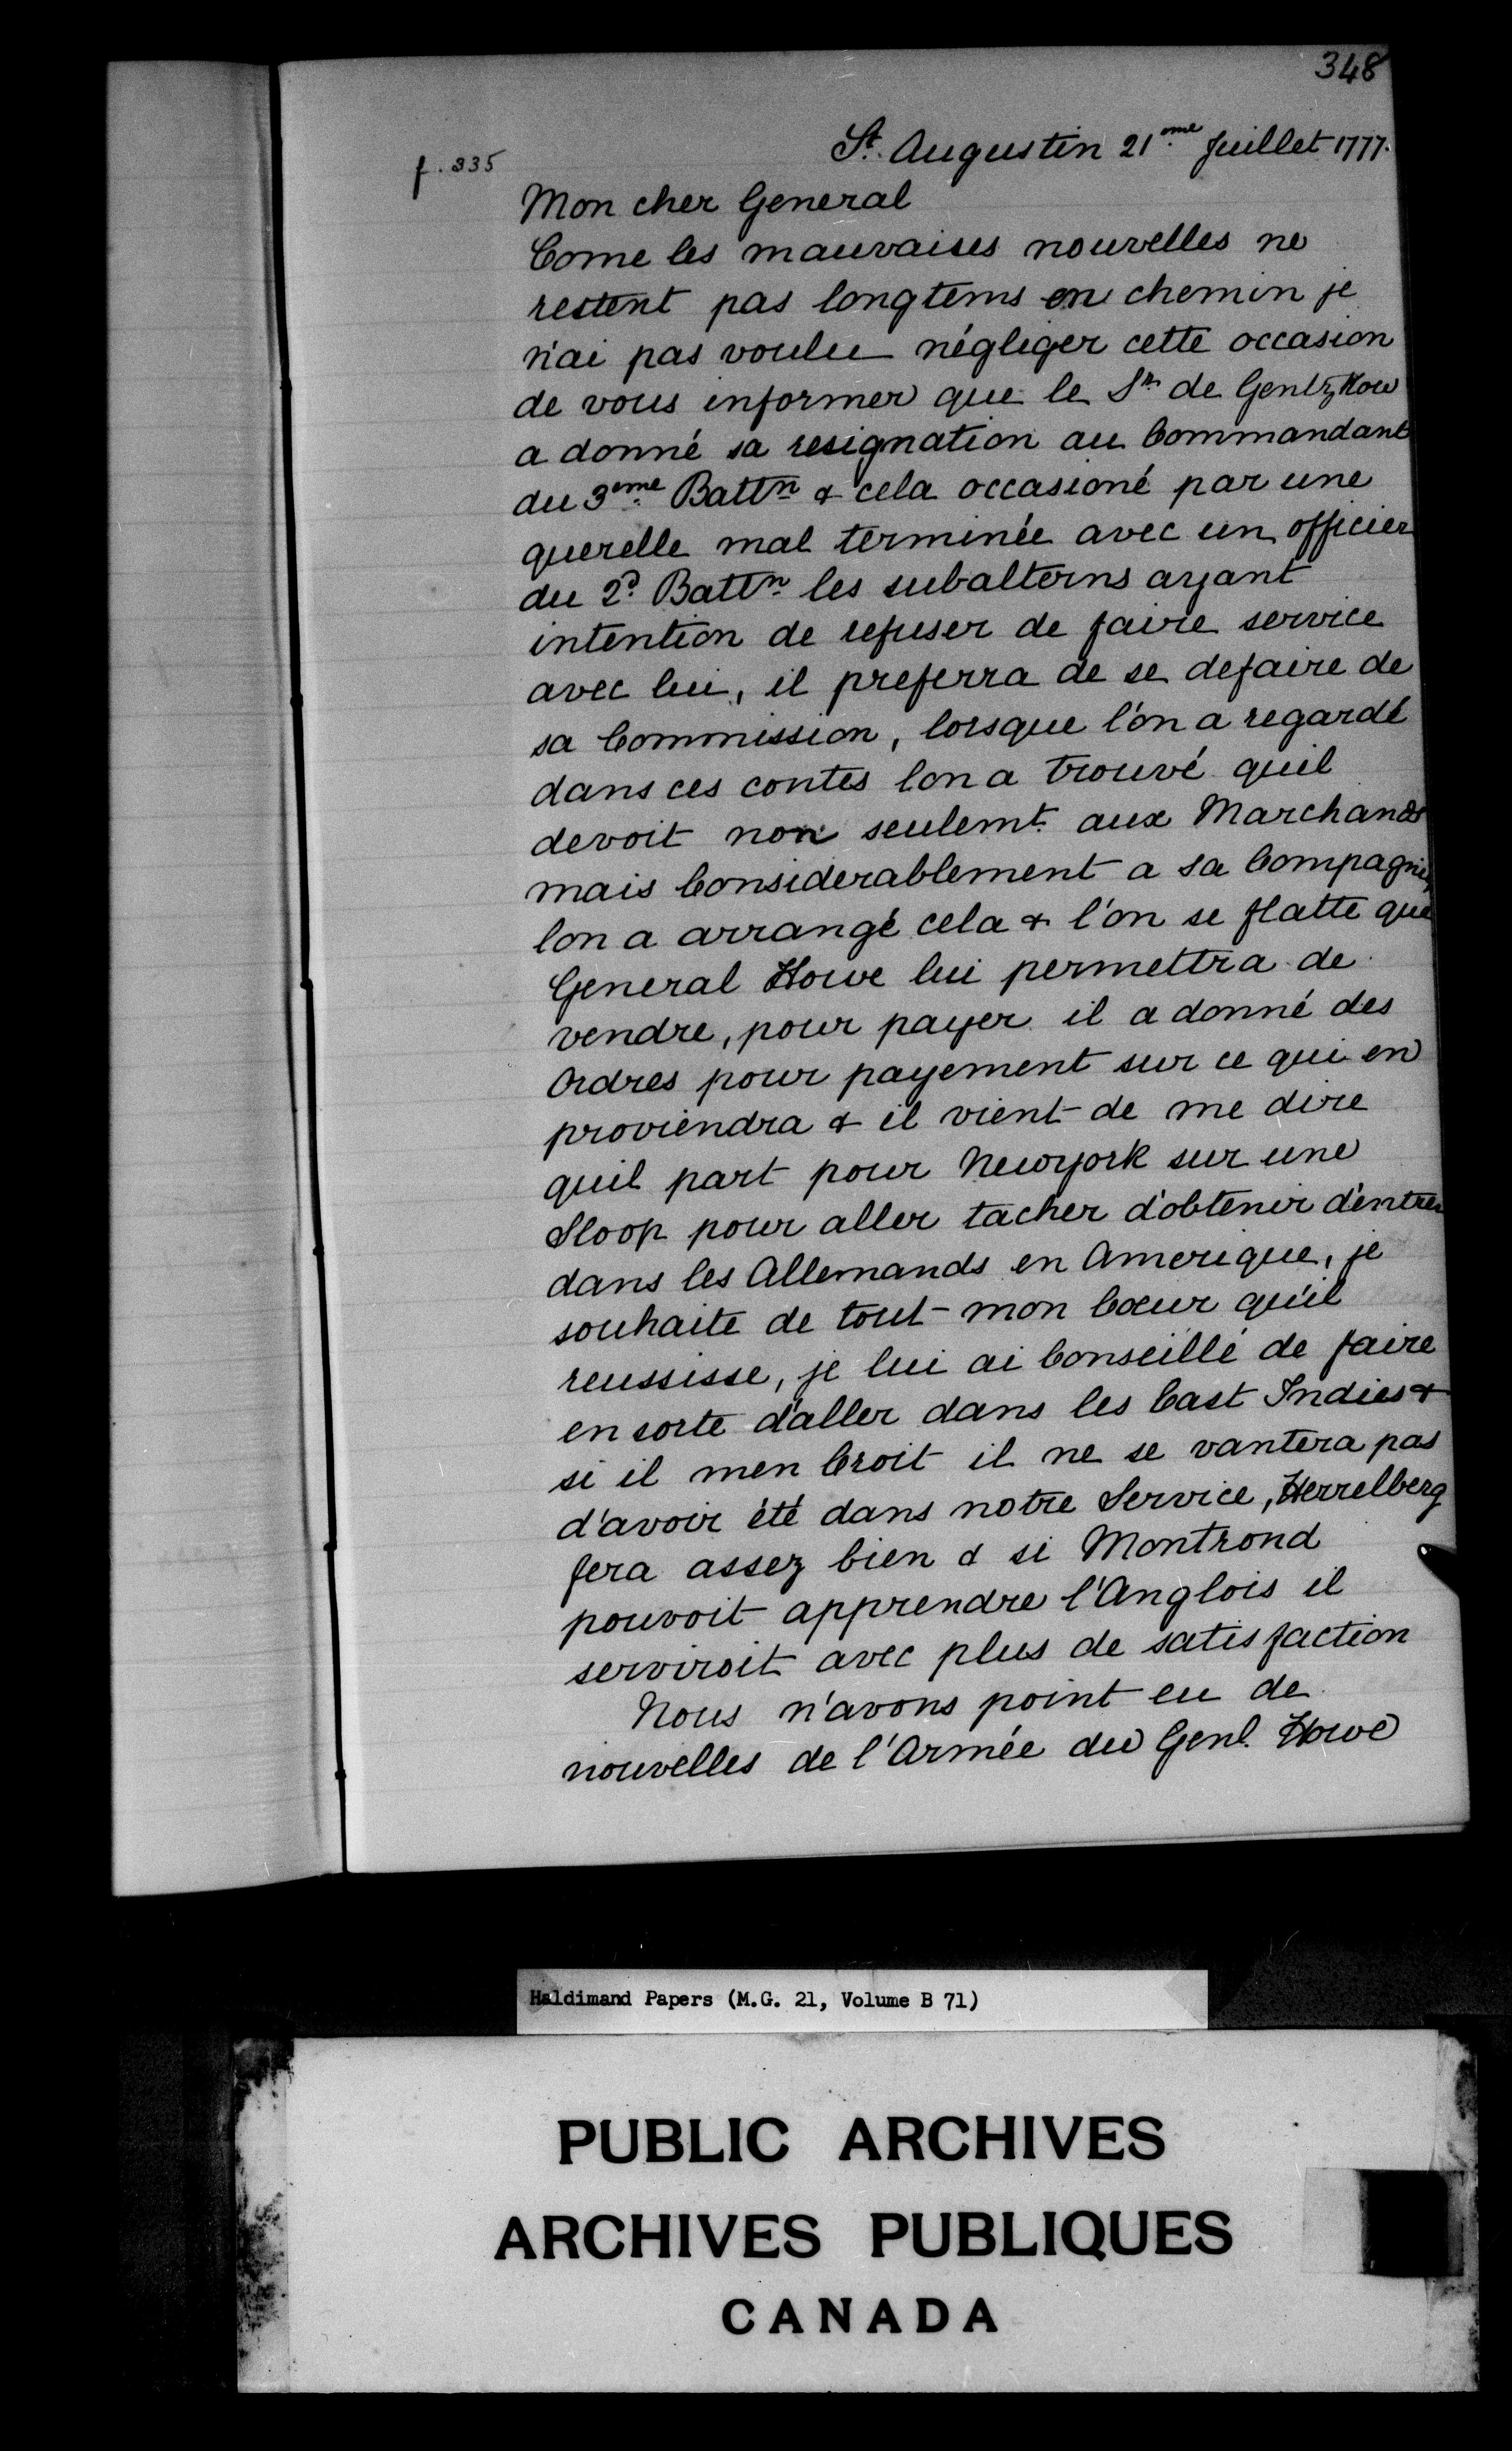 348
f. 335
St. Augustin 21.eme Juillet 1777.
Mon cher General
Come les mauvaises nouvelles ne
restent pas longtems en chemin je
n'ai pas voulu négliger cette occasion
de vous informer que le Sr de Gentzkow
a donné sa resignation au Commandant
du 3.eme Battn & cela occasioné par une
querelle mal terminée avec un officier
du 2d Battn les subalterns ayant
intention de refuser de faire service
avec lui, il preferra de se defaire de
sa Commission, lorsque l'on a regardé
dans ces contes lon a trouvé quil
devoit non seulemt. aux Marchands
mais Considerablement a sa Compagnie,
lon a arrangé cela & l'on se flatte que
General Howe lui permettra de
vendre, pour payer il a donné des
Ordres pour payement sur ce qui en
proviendra & il vient de me dire
quil part pour Newyork sur une
Sloop pour aller tacher d'obtenir d'entrer
dans les Allemands en Amerique, je
souhaite de tout mon Cœur qu'il
reussisse, je lui ai Conseillé de faire
en sorte d'aller dans les East Indies &
si il men Croit il ne se vantera pas
d'avoir été dans notre Service, Herrelberg
fera assez bien & si Montrond
pouvoit apprendre l'Anglois il
serviroit avec plus de satisfaction
Nous n'avons point eu de
nouvelles de l'Armée du Genl. Howe
Haldimand Papers (M.G. 21, Volume B 71)
PUBLIC ARCHIVES
ARCHIVES PUBLIQUES
CANADA